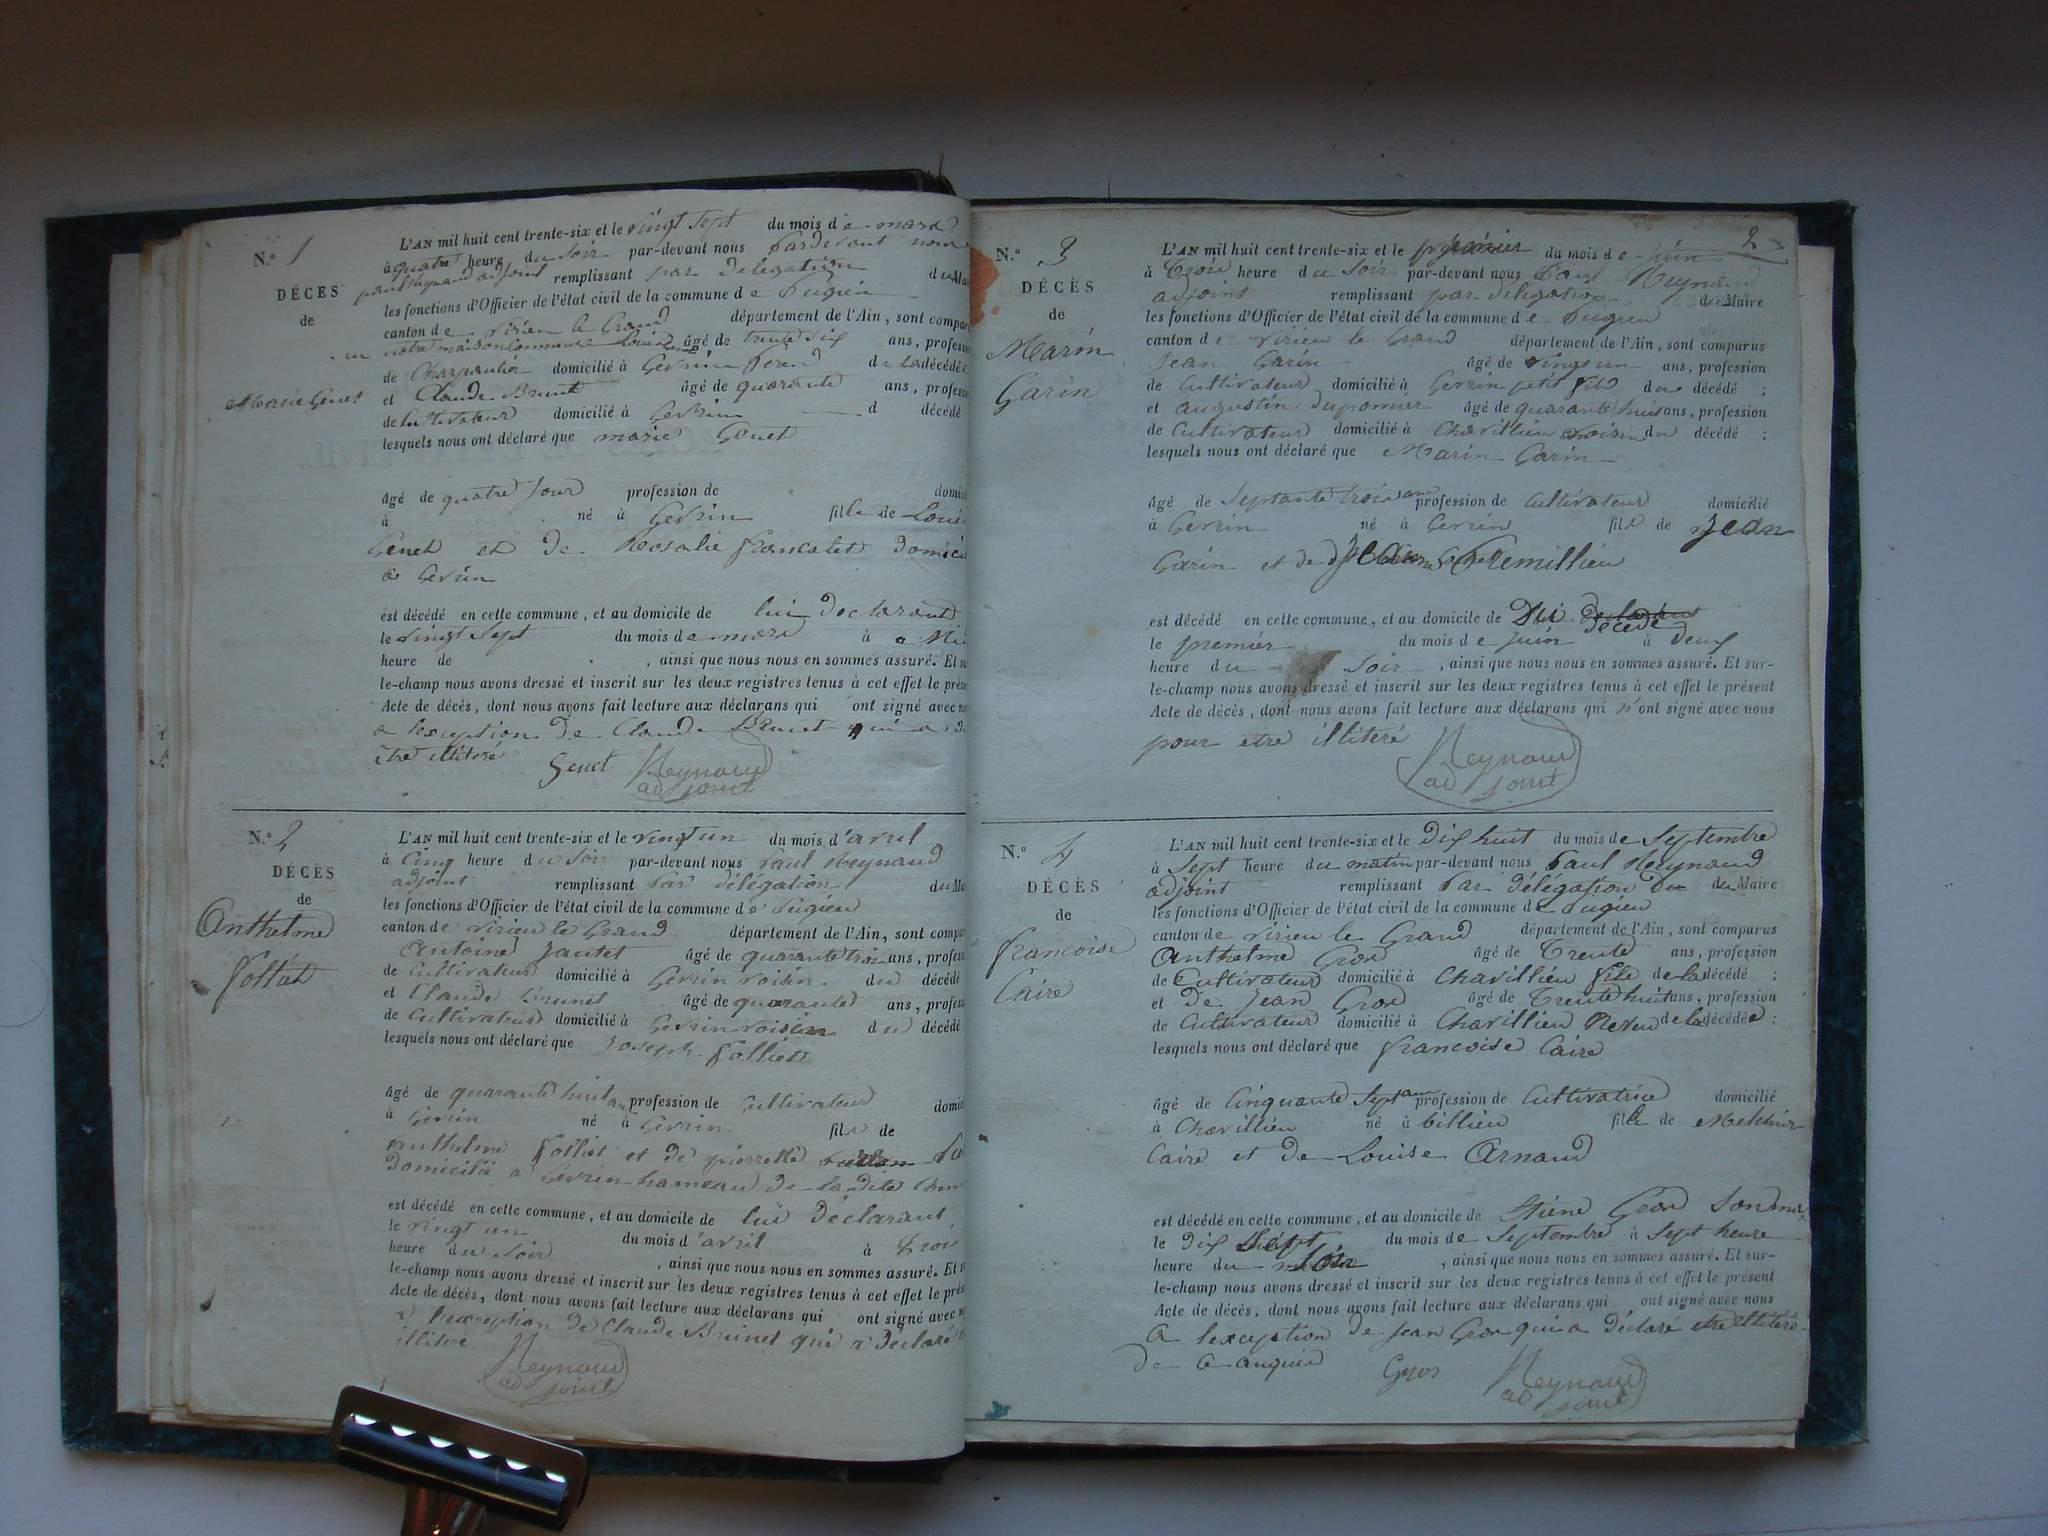 N.° 1
DÉCES
de
Marie Genet
L'AN mil huit cent trente-six et le vingt sept du mois de mars
à quatre heure du soir par-devant nous Pardevant nous
paul Reynaud adjoint remplissant par délégation du
les fonctions d'Officier de l'état civil de la commune de Pugieu
canton de virieu le Grand département de l'Ain, sont
notre maison Commune Louis Genet âgé de trente six ans,
de Charpentier domicilié à Gevrin de la décédé
et Claude Brunet âgé de quarante ans,
de Cultivateur domicilié à Gevrin d décédé
lesquels nous ont déclaré que marie Genet
âgé de quatre Jour profession de
à né à Gevrin fille de Louis
Genet et de Rosalie francolet
a Gevrin
est décédé en cette commune, et au domicile de lui declarant
le vingt sept du mois de mars à
heure de , ainsi que nous nous en sommes assuré. Et
le-champ nous avons dressé et inscrit sur les deux registres tenus à cet effet le
Acte de décès, dont nous avons fait lecture aux déclarans qui ont signé avec
a lexception de Claude Brunet qui a
etre illiteré Genet Reynaud
adjoint
N.° 2
DÉCÈS
de
Anthelme
folliet
L'AN mil huit cent trente-six et le vingt un du mois d'avril
à Cinq heure du soir par-devant nous Paul Reynaud
adjoint remplissant Par délégation du
les fonctions d'Officier de l'état civil de la commune de Pugieu
canton de virieu le Grand département de l'Ain, sont
Antoine Jantet âgé de quarante trois ans,
de Cultivateur domicilié à Gevrin voisin du décédé
et Claude Brunet âgé de quarante ans,
de Cultivateur domicilié à Gevrin voisin du décédé
lesquels nous ont déclaré que Joseph folliet
âgé de quarante huit ans profession de Cultivateur
à Gevrin né à Gevrin fils de
anthelme folliet et de pierrette
domicilié a Gevrin hameau de ladite
est décédé en cette commune, et au domicile de lui Déclarant
le vingt un du mois d'avril à trois
heure du soir , ainsi que nous nous en sommes assuré. Et
le-champ nous avons dressé et inscrit sur les deux registres tenus à cet effet le
Acte de décès, dont nous avons fait lecture aux déclarans qui ont signé avec
a lexception de Claude Brunet qui a déclaré
illiteré Reynaud
adjoint
2
N.° 3
DÉCÈS
de
Marin
Garin
L'AN mil huit cent trente-six et le premier du mois de juin
à Trois heure du soir par-devant nous Paul Reynaud
adjoint remplissant par délégation du Maire
les fonctions d'Officier de l'état civil de la commune de Pugieu
canton de virieu le Grand département de l'Ain, sont comparus
Jean Garin âgé de vingt un ans, profession
de Cultivateur domicilié à Gevrin petit fils du décédé ;
et augustin dupomier âgé de quarante huit ans, profession
de Cultivateur domicilié à Chavillieu voisin du décédé ;
lesquels nous ont déclaré que Marin Garin
âgé de Septante trois ans profession de Cultivateur domicilié
à Gevrin né à Gevrin fils de Jean
Garin et de
est décédé en cette commune, et au domicile de Du décédé
le premier du mois de juin à deux
heure du soir , ainsi que nous nous en sommes assuré. Et sur-
le-champ nous avons dressé et inscrit sur les deux registres tenus à cet effet le présent
Acte de décès, dont nous avons fait lecture aux déclarans qui n'ont signé avec nous
pour etre illiteré Reynaud
adjoint
N.° 4
DÉCÈS
de
francoise
Caire
L'AN mil huit cent trente-six et le dix huit du mois de Septembre
à Sept heure du matin par-devant nous Paul Reynaud
adjoint remplissant Par délégation du du Maire
les fonctions d'Officier de l'état civil de la commune de Pugieu
canton de virieu le Grand département de l'Ain, sont comparus
Anthelme Gros âgé de Trente ans, profession
de Cultivateur domicilié à Chavillieu fils de la décédé ;
et de Jean Gros âgé de Trente huit ans, profession
de Cultivateur domicilié à Chavillieu Neveu de la décédée ;
lesquels nous ont déclaré que francoise Caire
âgé de Cinquante Sept ans profession de Cultivatrice domicilié
à Chavillieu né à billieu fille de Melchior
Caire et de Louise Arnaud
est décédé en cette commune, et au domicile de Gros Son
le dix Sept du mois de Septembre à Sept heure
heure du Soir , ainsi que nous nous en sommes assuré. Et sur-
le-champ nous avons dressé et inscrit sur les deux registres tenus à cet effet le présent
Acte de décès, dont nous avons fait lecture aux déclarans qui ont signé avec nous
a lexception de Jean Gros qui a déclaré etre illiteré
de ce enquis Gros Reynaud
adjoint